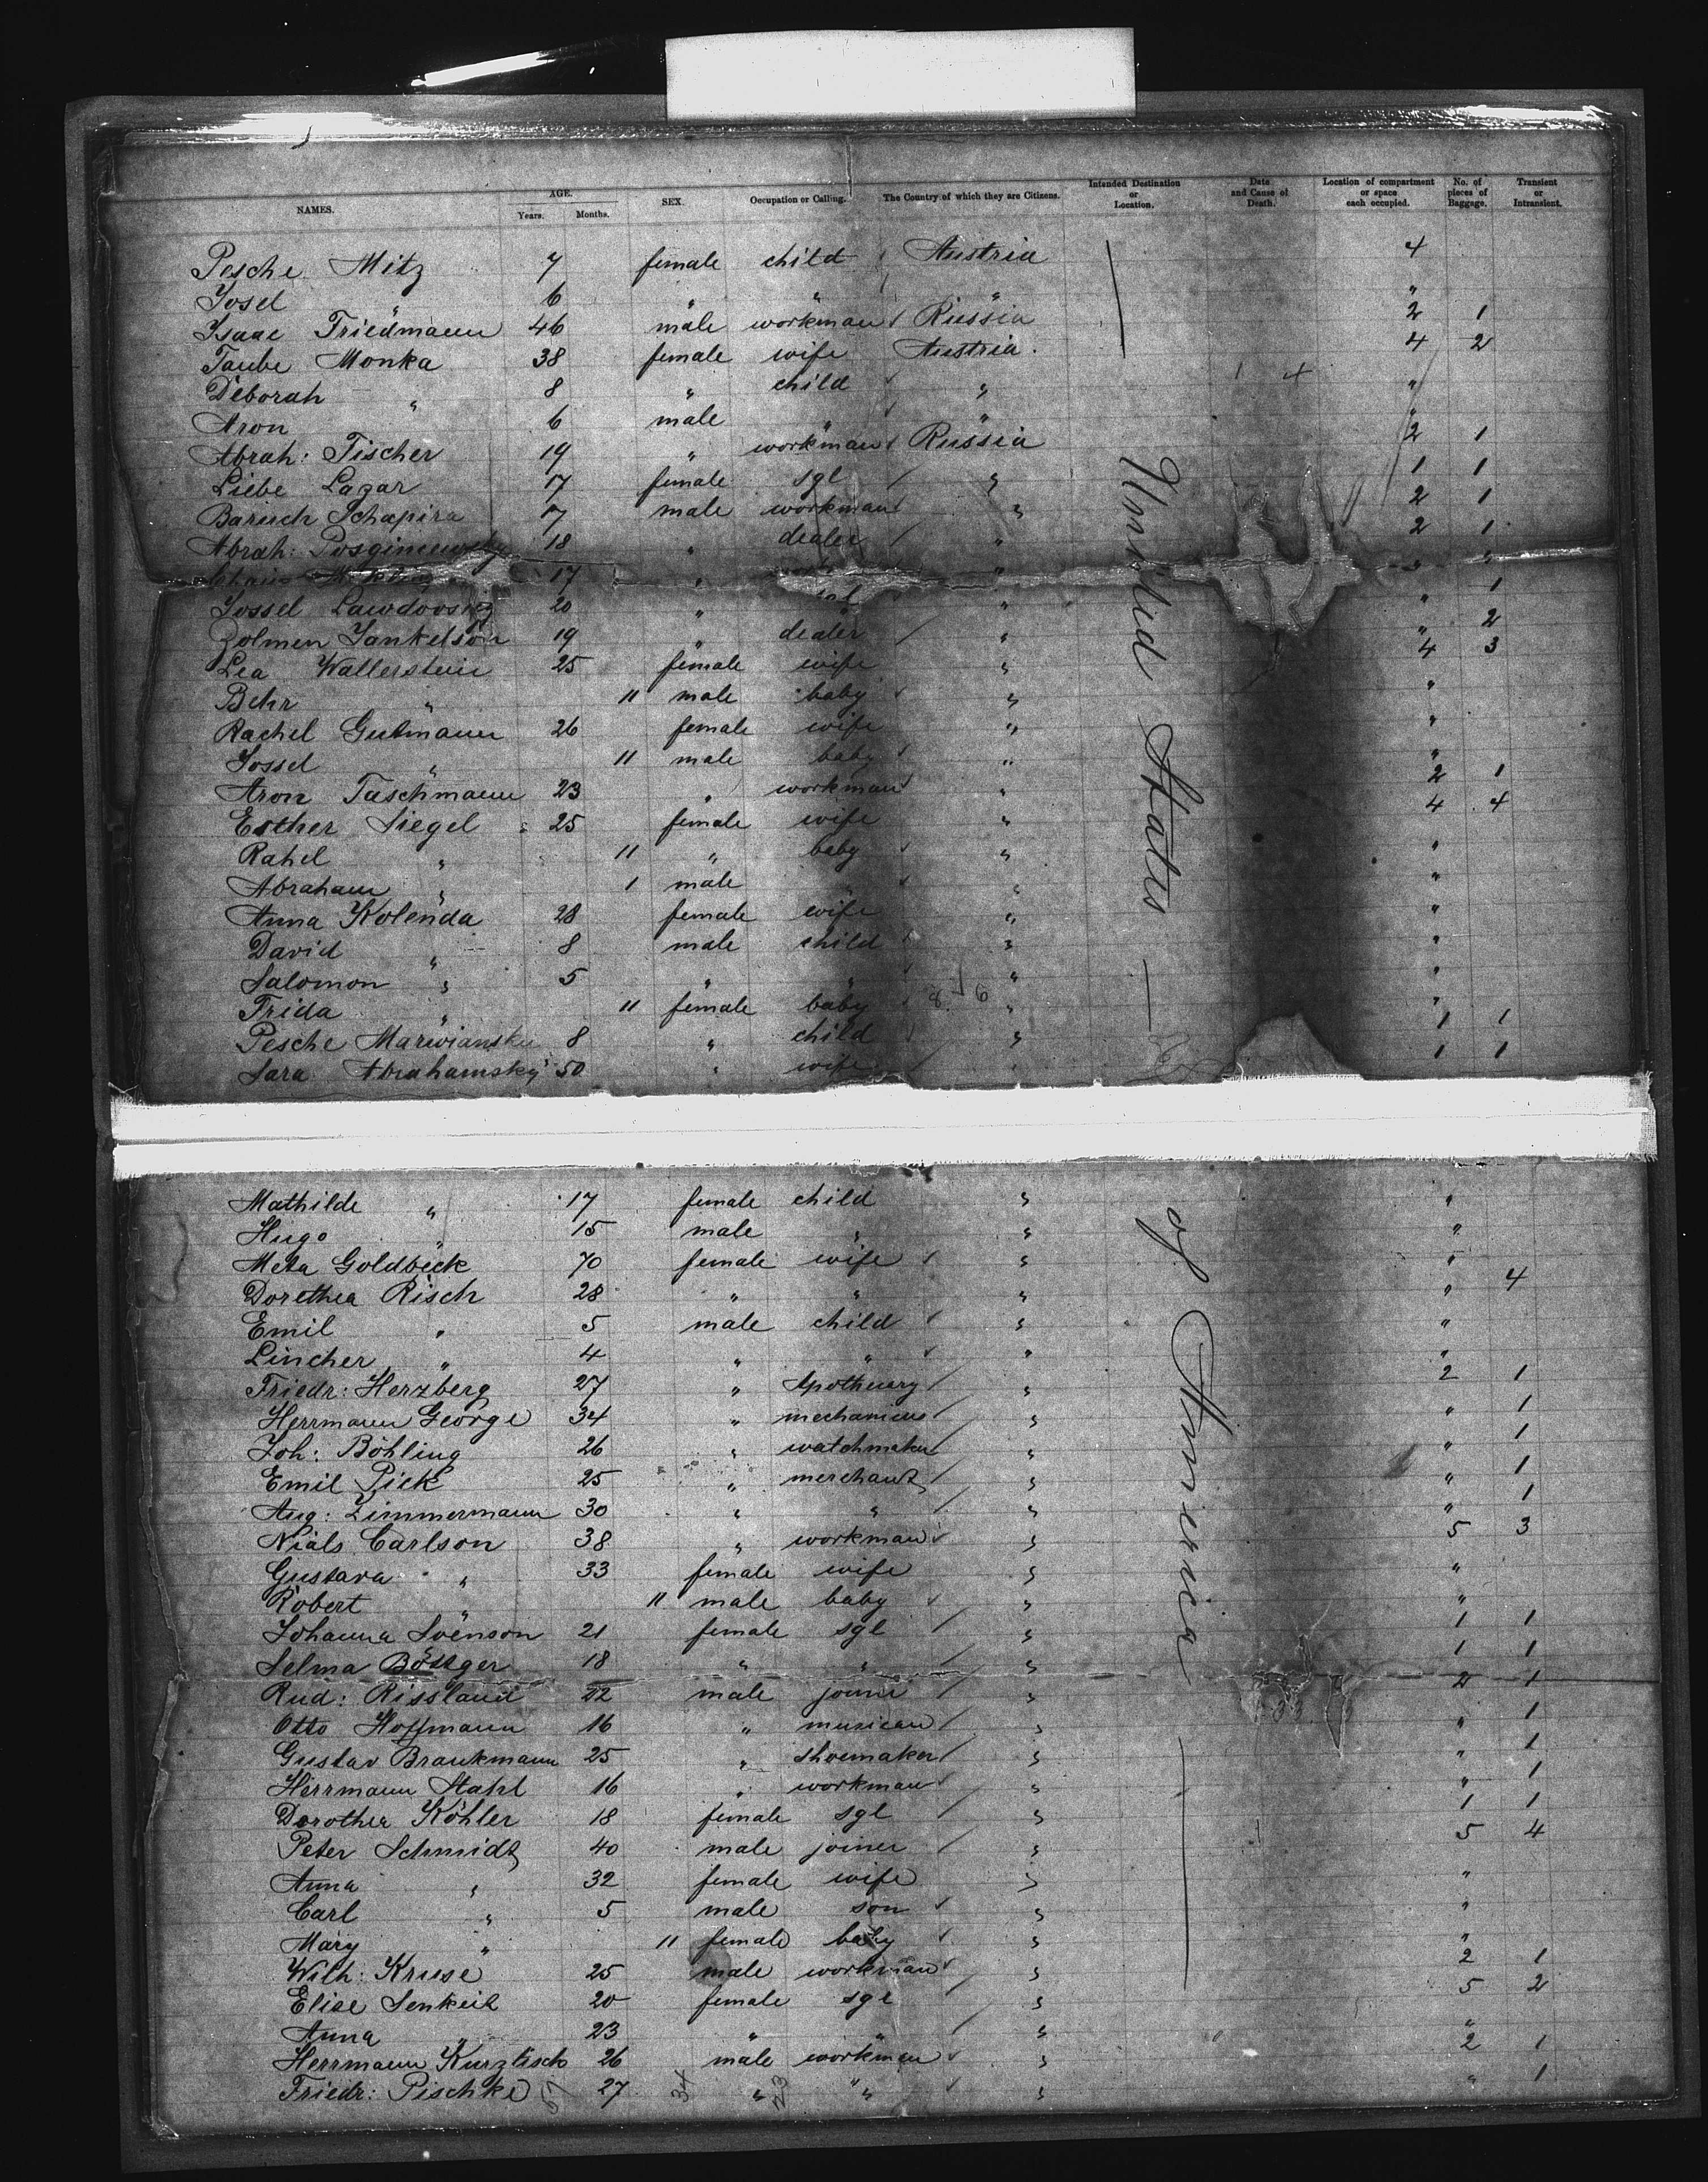 NAMES. AGE. Years. Months. SEX. Occupation or Calling. The Country of which they are Citizens. Intended Destination or Location. Date and Cause of Death. Location of compartment or space each occupied. No. of pieces of Baggage. Transient or Intransient.
Pesche Mitz 7 female child Austria 4
Yosel " 6 " " " "
Isaac Friedmann 46 male workman Russia 2 1
Taube Monka 38 female wife Austria. 4 2
Deborah " 8 " child " "
Aron " 6 male " " "
Abrah: Fischer 19 " workman Russia 2 1
Liebe Lazar 17 female sgl " 1 1
Baruch Schapira 17 male workman " 2 1
Abrah: 18 " dealer " 2 1
17 " " " "
Yossel 20 " sgl " " 1
Zolmen Jankelson 19 " dealer " " 2
Lea Wallerstein 25 female wife " 4 3
Behr " 11 male baby " "
Rachel Gutmann 26 female wife " "
Yossel " 11 male baby " "
Aron Taschmann 23 " workman " 2 1
Esther Siegel 25 female wife " 4 4
Rahel " 11 " baby " "
Abraham " 1 male " " "
Anna Kolenda 28 female wife " "
David " 8 male child " "
Salomon " 5 " " " "
Frida " 11 female baby " "
Pesche 8 " child " 1 1
Sara Abrahamsky 50 " wife " 1 1
United States — of America —
Mathilde " 17 female child " "
Hugo " 15 male " " "
Meta Goldbeck 70 female wife " "
Dorethea Risch 28 " " " " 4
Emil " 5 male child " "
Lincher " 4 " " " "
Friedr: Herzberg 27 " Apothecary " 2 1
Herrmann George 34 " mechanicus " " 1
Joh: Böhling 26 " watchmaker " " 1
Emil Pick 25 " merchant " " 1
Aug: Zimmermann 30 " " " " 1
Nials Carlson 38 " workman " 5 3
Gustava " 33 female wife " "
Robert " 11 male baby " "
Johanna Svenson 21 female sgl " 1 1
Selma Böttger 18 " " " 1 1
Rud: Rissland 22 male joiner " 2 1
Otto Hoffmann 16 " musican " " 1
Gustav Braukmann 25 " shoemaker " " 1
Herrmann Stahl 16 " workman " " 1
Dorothea Köhler 18 female sgl " 1 1
Peter Schmidt 40 male joiner " 5 4
Anna " 32 female wife " "
Carl " 5 male son " "
Mary " 11 female baby " "
Wilh: Kruse 25 male workman " 2 1
Elise Senkeit 20 female sgl " 5 2
Anna " 23 " " " "
Herrmann Kurztisch 26 male workman " 2 1
Friedr: Pischke 27 " " " " 1
57 34 23